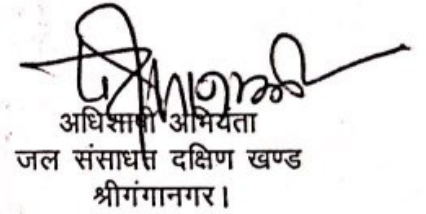 अधिशाषी अभियंता
जल संसाधन दक्षिण खण्ड
श्रीगंगानगर।